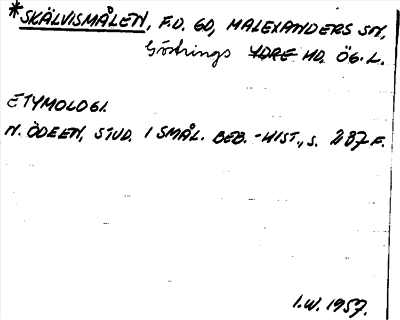 *SKÄLVISMÅLEN, F.D. GD, MALEXANDERS SN,
Göstrings YDRE HD. ÖG.L.
ETYMOLOGI.
N. ÖDEEN, STUD. I SMÅL. BEB.-HIST., S. 287 F.
I.W. 1957.